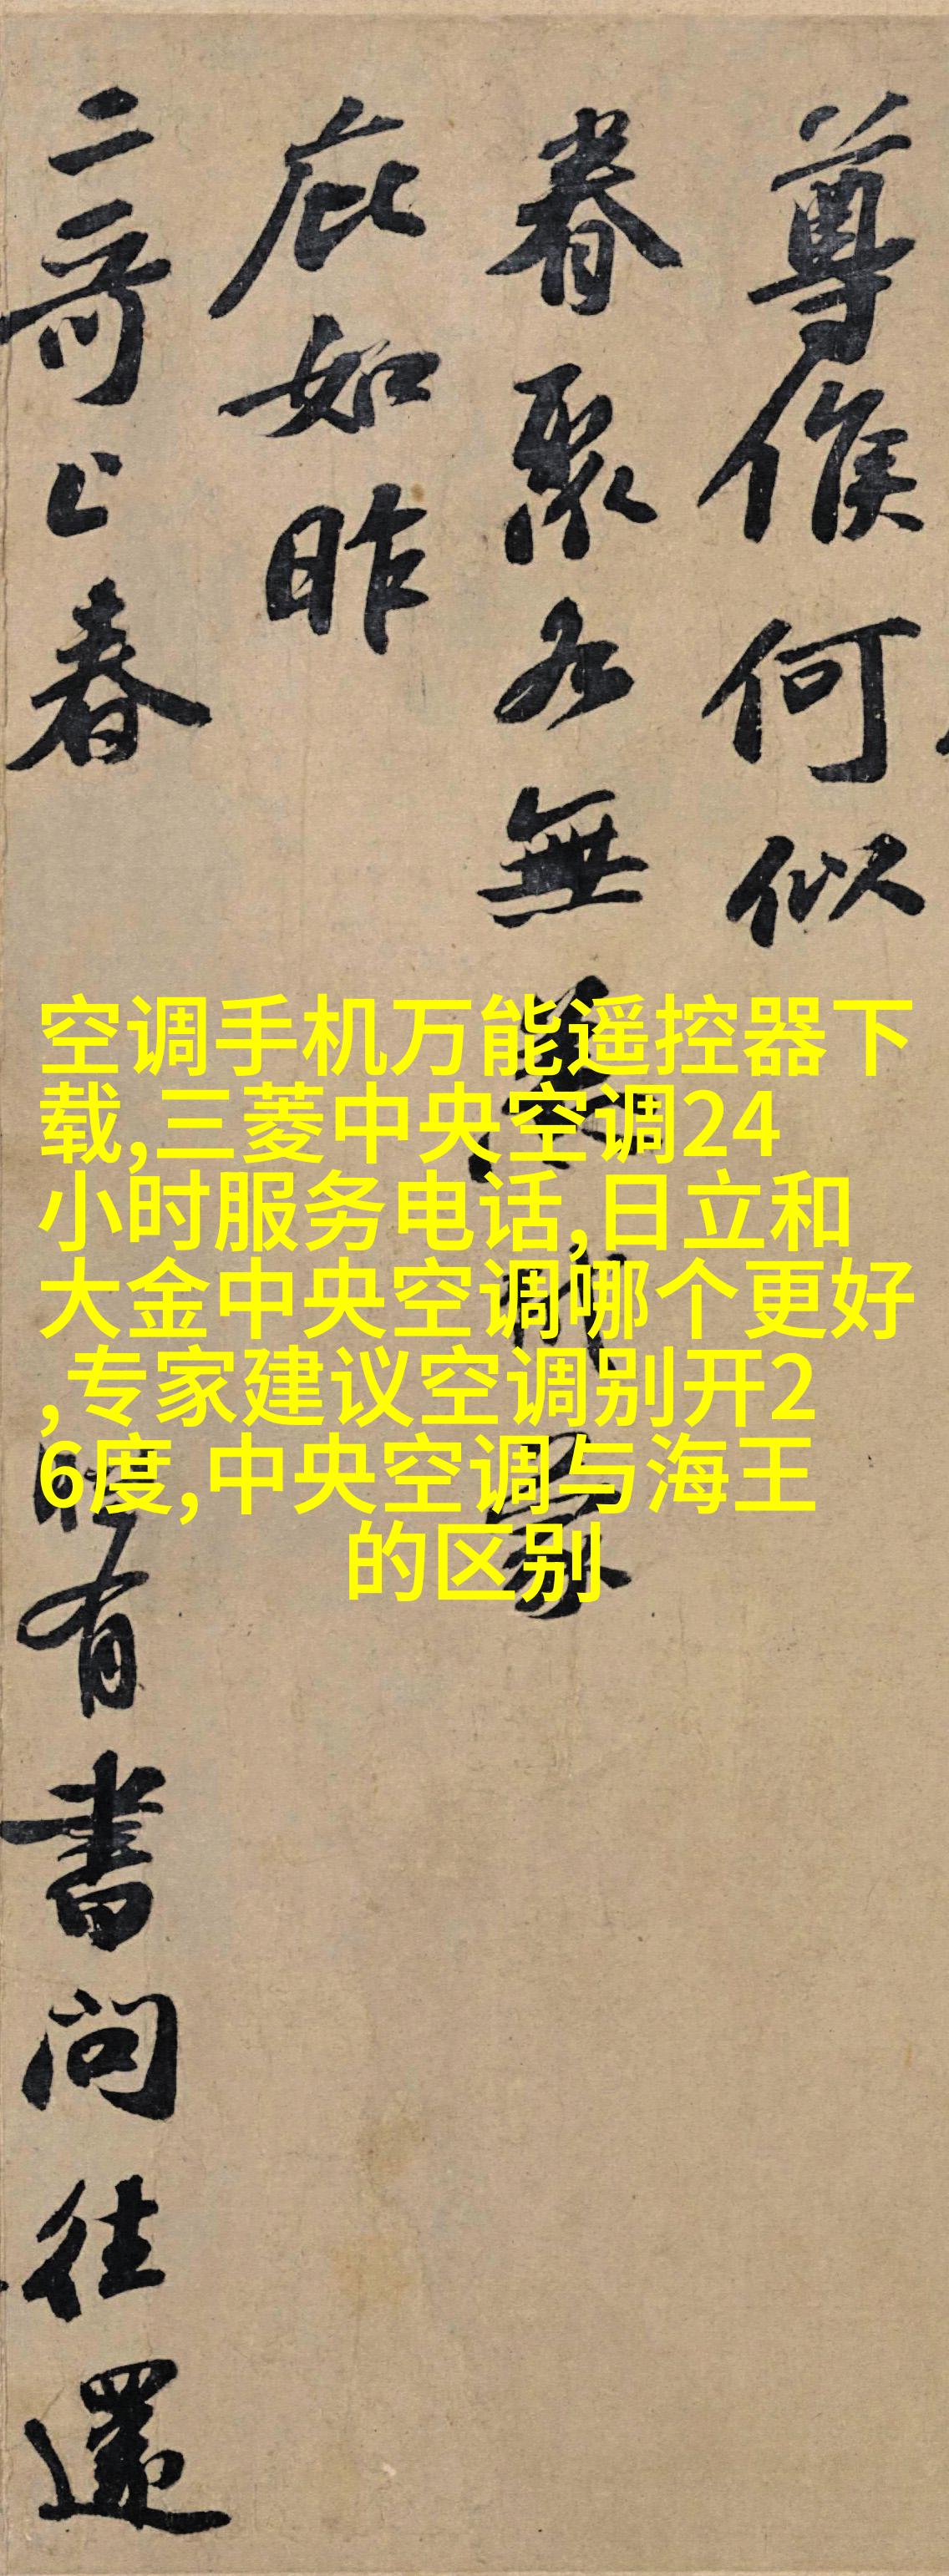 尊候何似
眷聚各無
庇如昨
二哥上春
有書問往還
空调手机万能遥控器下
载,三菱中央空调24
小时服务电话,日立和
大金中央空调哪个更好
,专家建议空调别开2
6度,中央空调与海王
的区别